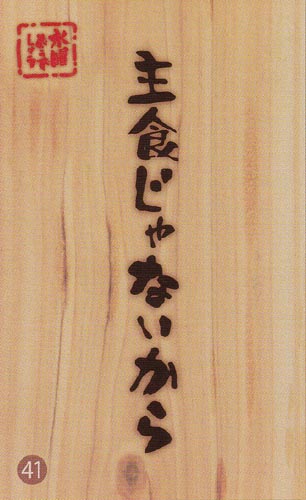 水曜
どうで
しょう
主食じゃないから
41